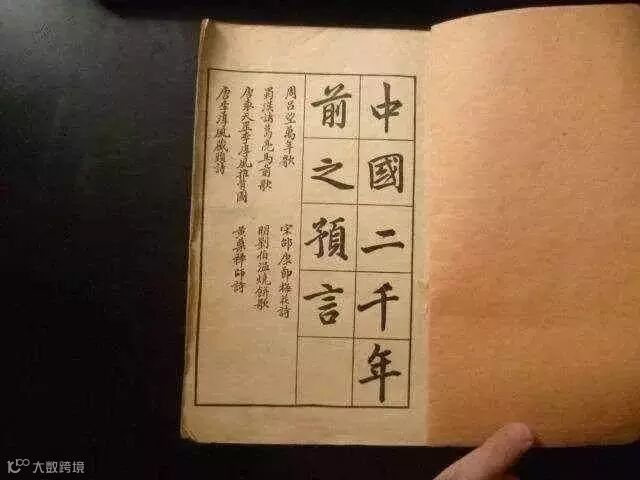 中國二千年
前之預言
周呂望萬年歌
蜀漢諸葛亮馬前歌
唐袁天罡李淳風推背圖
唐李淳風藏頭詩
宋邵康節梅花詩
明劉伯溫燒餅歌
黃蘗禪師詩
大数跨境